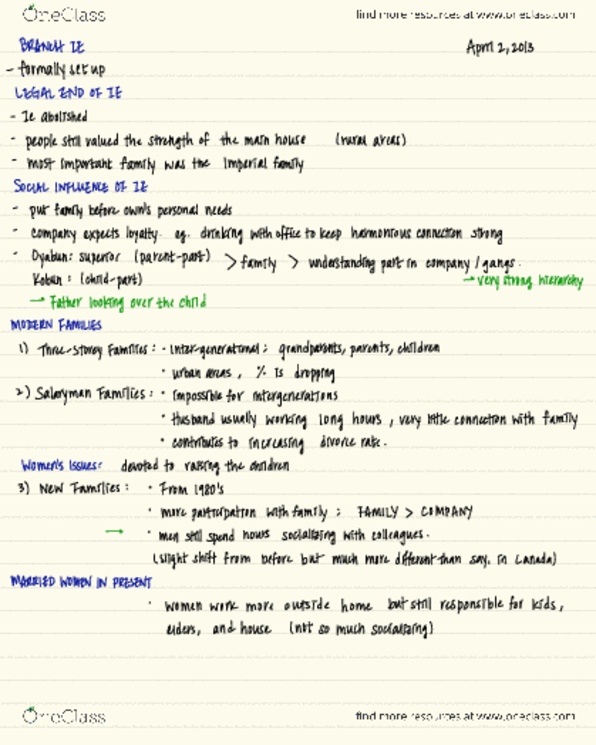 OneClass find more resources at www.oneclass.com
BRANCH IE April 2, 2013
- formally set up
LEGAL END OF IE
- Ie abolished
- people still valued the strength of the main house (rural areas)
- most important family was the Imperial family
SOCIAL INFLUENCE OF IE
- put family before own's personal needs
- company expects loyalty. eg. drinking with office to keep harmonious connection strong
- Oyabun: superior (parent-part) > family > understanding part in company / gangs.
Kobun : (child-part) → very strong hierarchy
→ Father looking over the child
MODERN FAMILIES
1) Three-Storey Families : • Inter-generational : grandparents, parents, children
• urban areas , % is dropping
2) Salaryman Families : • Impossible for intergenerations
• Husband usually working long hours , very little connection with family
• contributes to increasing divorce rate.
Women's Issues: devoted to raising the children
3) New Families : • From 1980's
• more participation with family : FAMILY > COMPANY
→ • men still spend hours socializing with colleagues.
(slight shift from before but much more different than say, in Canada)
MARRIED WOMEN IN PRESENT
• women work more outside home but still responsible for kids,
elders, and house (not so much socializing)
OneClass find more resources at www.oneclass.com